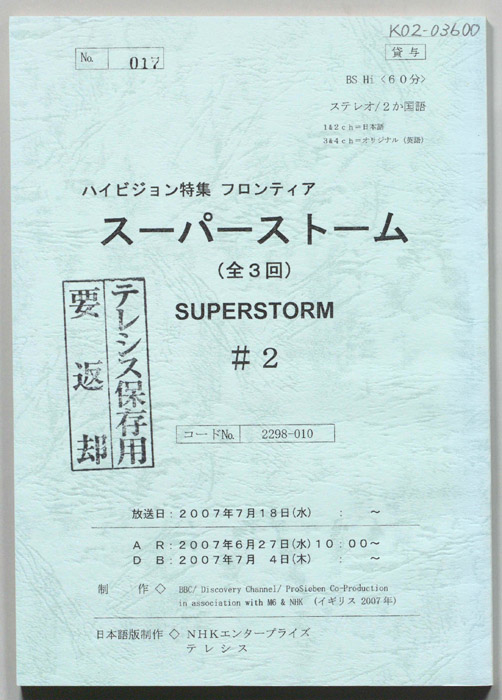 K02-03600
No. 017
貸与
BS Hi〈６０分〉
ステレオ/２か国語
1&2ｃｈ＝日本語
3&4ｃｈ＝オリジナル（英語）
ハイビジョン特集 フロンティア
スーパーストーム
（全３回）
SUPERSTORM
＃２
テレシス保存用
要返却
コードNo. 2298-010
放送日：２００７年７月１８日(水)　：　～
Ａ　Ｒ：２００７年６月２７日(水)１０：００～
Ｄ　Ｂ：２００７年７月　４日(木)　：　～
制　作◇ BBC/ Discovery Channel/ ProSieben Co-Production
in association with M6 & NHK （イギリス 2007年）
日本語版制作◇ ＮＨＫエンタープライズ
テレシス